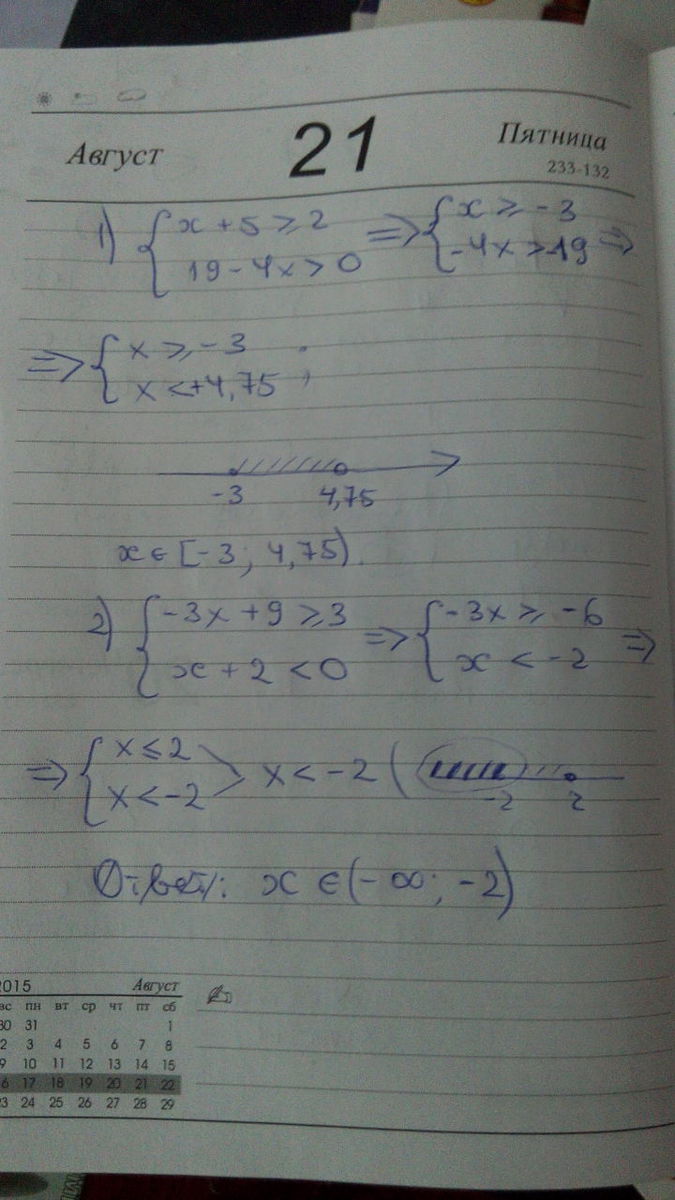 Август 21 Пятница
233-132
1) { x + 5 ⩾ 2 ⇒ { x ⩾ -3
19 - 4x > 0 -4x > -19 ⇒
⇒ { x ⩾ -3
x < +4,75 ;
-3 4,75
x ∈ [-3; 4,75).
2) { -3x + 9 ⩾ 3 ⇒ { -3x ⩾ -6
x + 2 < 0 x < -2 ⇒
⇒ { x ⩽ 2
x < -2 > x < -2 (
-2 2
Ответ: x ∈ (-∞; -2)
2015 Август
вс пн вт ср чт пт сб
30 31 1
2 3 4 5 6 7 8
9 10 11 12 13 14 15
16 17 18 19 20 21 22
23 24 25 26 27 28 29